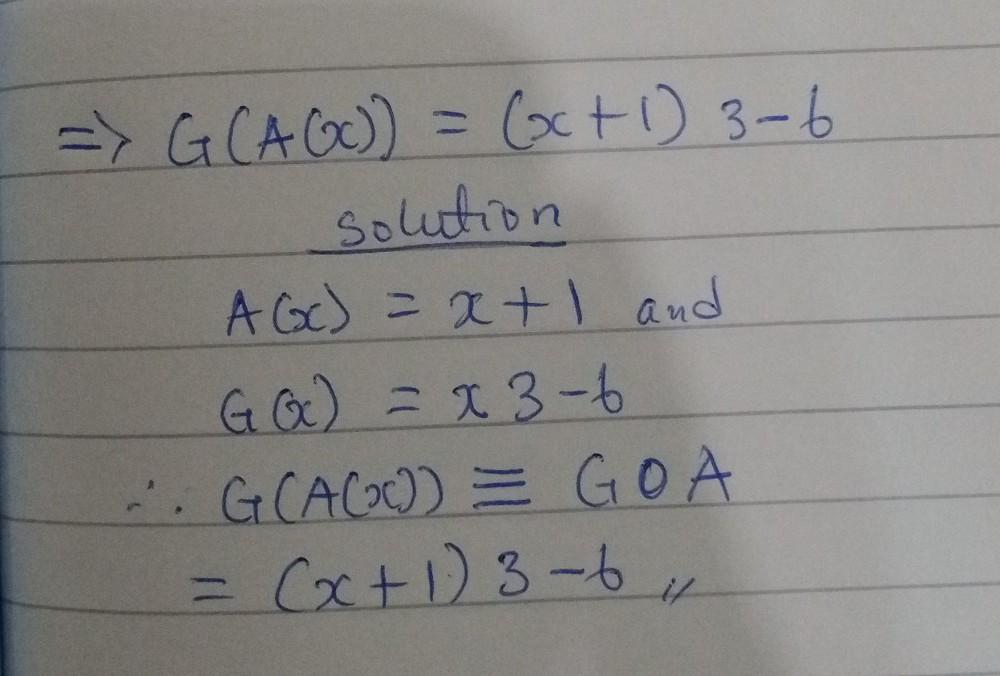 => G(A(x)) = (x+1) 3-6
solution
A(x) = x+1 and
G(x) = x3-6
∴ G(A(x)) ≡ GOA
= (x+1) 3-6 //